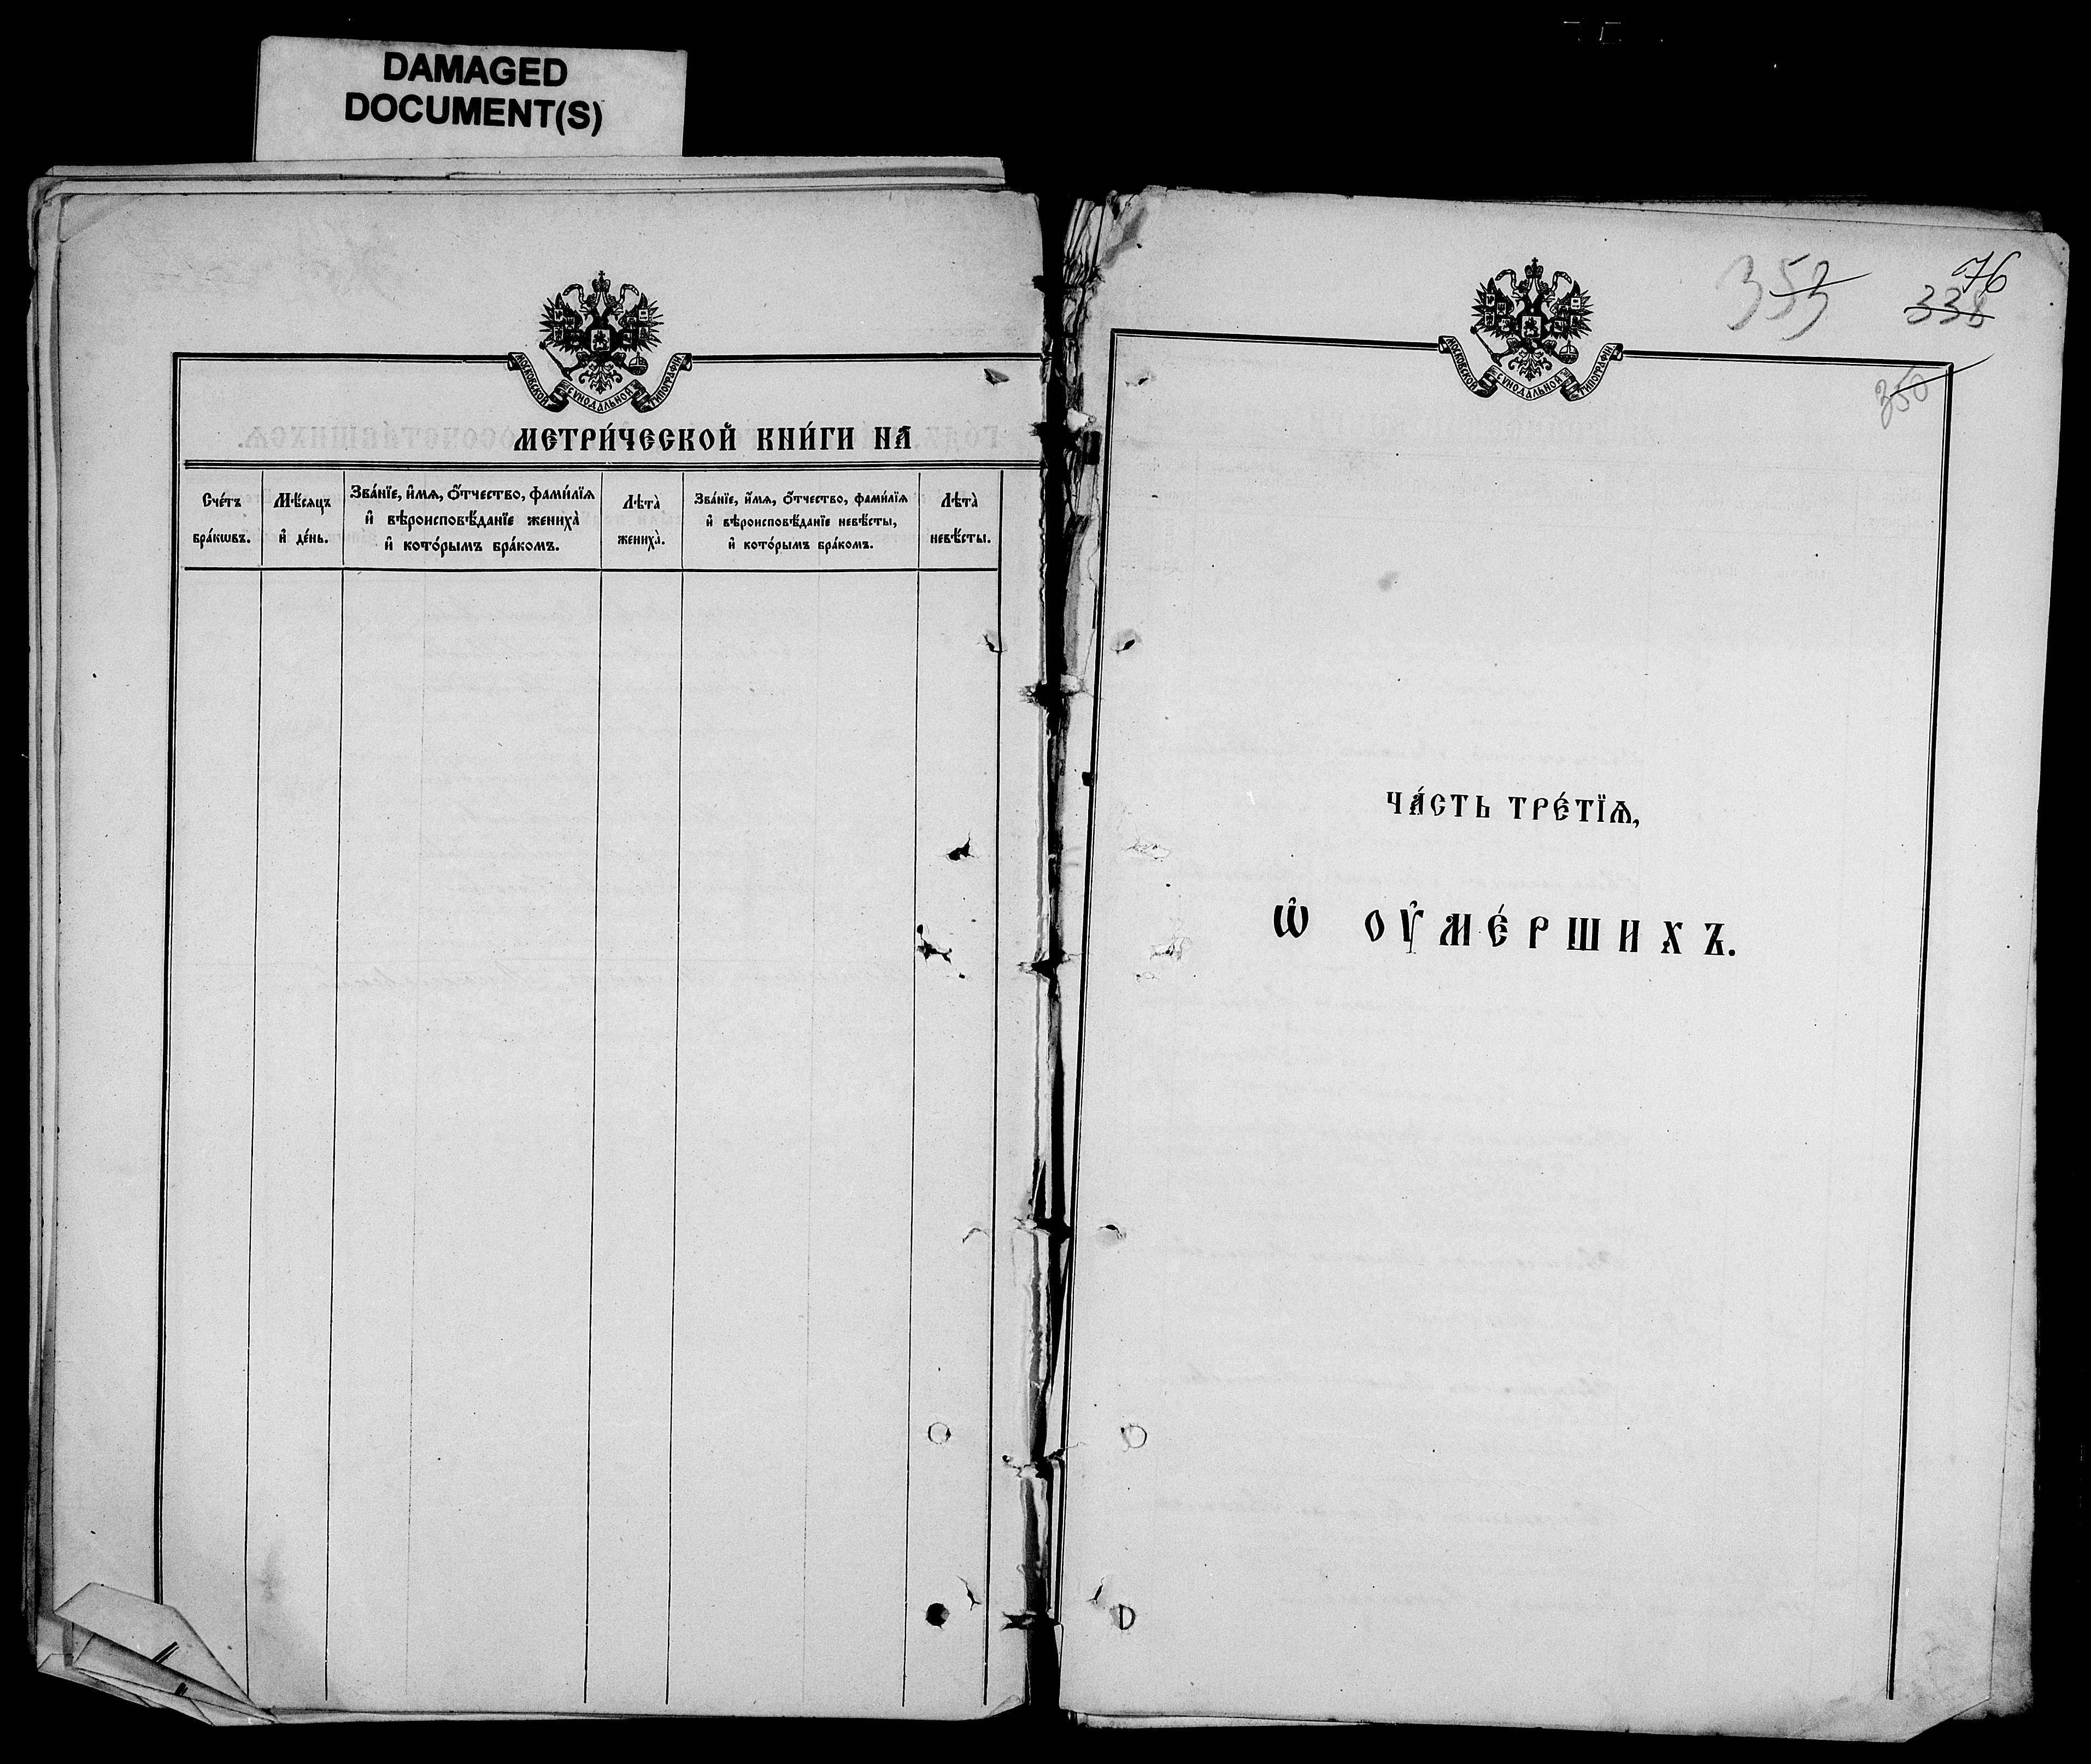 DAMAGED
DOCUMENT(S)
МОСКОВСКОЙ СѴНОДАЛЬНОЙ ТИПОГРАФІИ
МЕТРИ́ЧЕСКОЙ КНИ́ГИ НА
Сче́тъ
бра́кѡвъ.
Мѣ́сяцъ
и҆ де́нь.
Зва́нїе, и҆́мѧ, ѻ҆́тчество, фами́лїѧ
и҆ вѣроисповѣ́данїе жениха̀
и҆ кото́рымъ бра́комъ.
Лѣта̀
жениха̀.
Зва́нїе, и҆́мѧ, ѻ҆́тчество, фами́лїѧ
и҆ вѣроисповѣ́данїе невѣ́сты,
и҆ кото́рымъ бра́комъ.
Лѣта̀
невѣ́сты.
353
76
338
350
МОСКОВСКОЙ СѴНОДАЛЬНОЙ ТИПОГРАФІИ
ЧА́СТЬ ТРЕ́ТЇѦ,
Ѡ҆ ОУ҆МЕ́РШИХЪ.